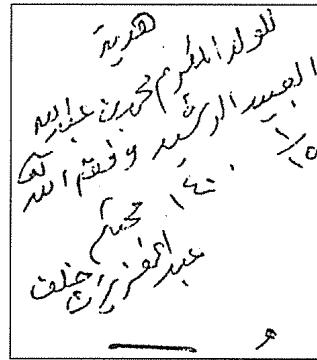 هدية
للولد المكرم محمد بن عبدالله
العبيد الرشيد وفقه الله
١/١٥
١٤٠٠ محبكم
عبدالعزيز بن خلف